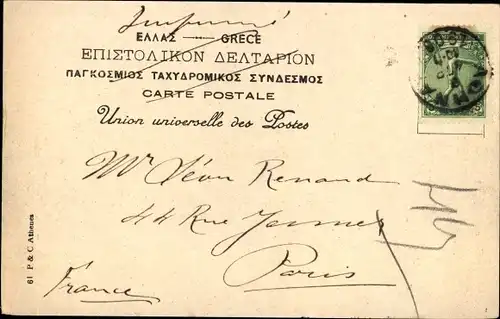 Imprimé
ΕΛΛΑΣ — GRECE
ΕΠΙΣΤΟΛΙΚΟΝ ΔΕΛΤΑΡΙΟΝ
ΠΑΓΚΟΣΜΙΟΣ ΤΑΧΥΔΡΟΜΙΚΟΣ ΣΥΝΔΕΣΜΟΣ
CARTE POSTALE
Union universelle des Postes
Mr Léon Renard
44 Rue
Paris
France
61 P & C Athenes